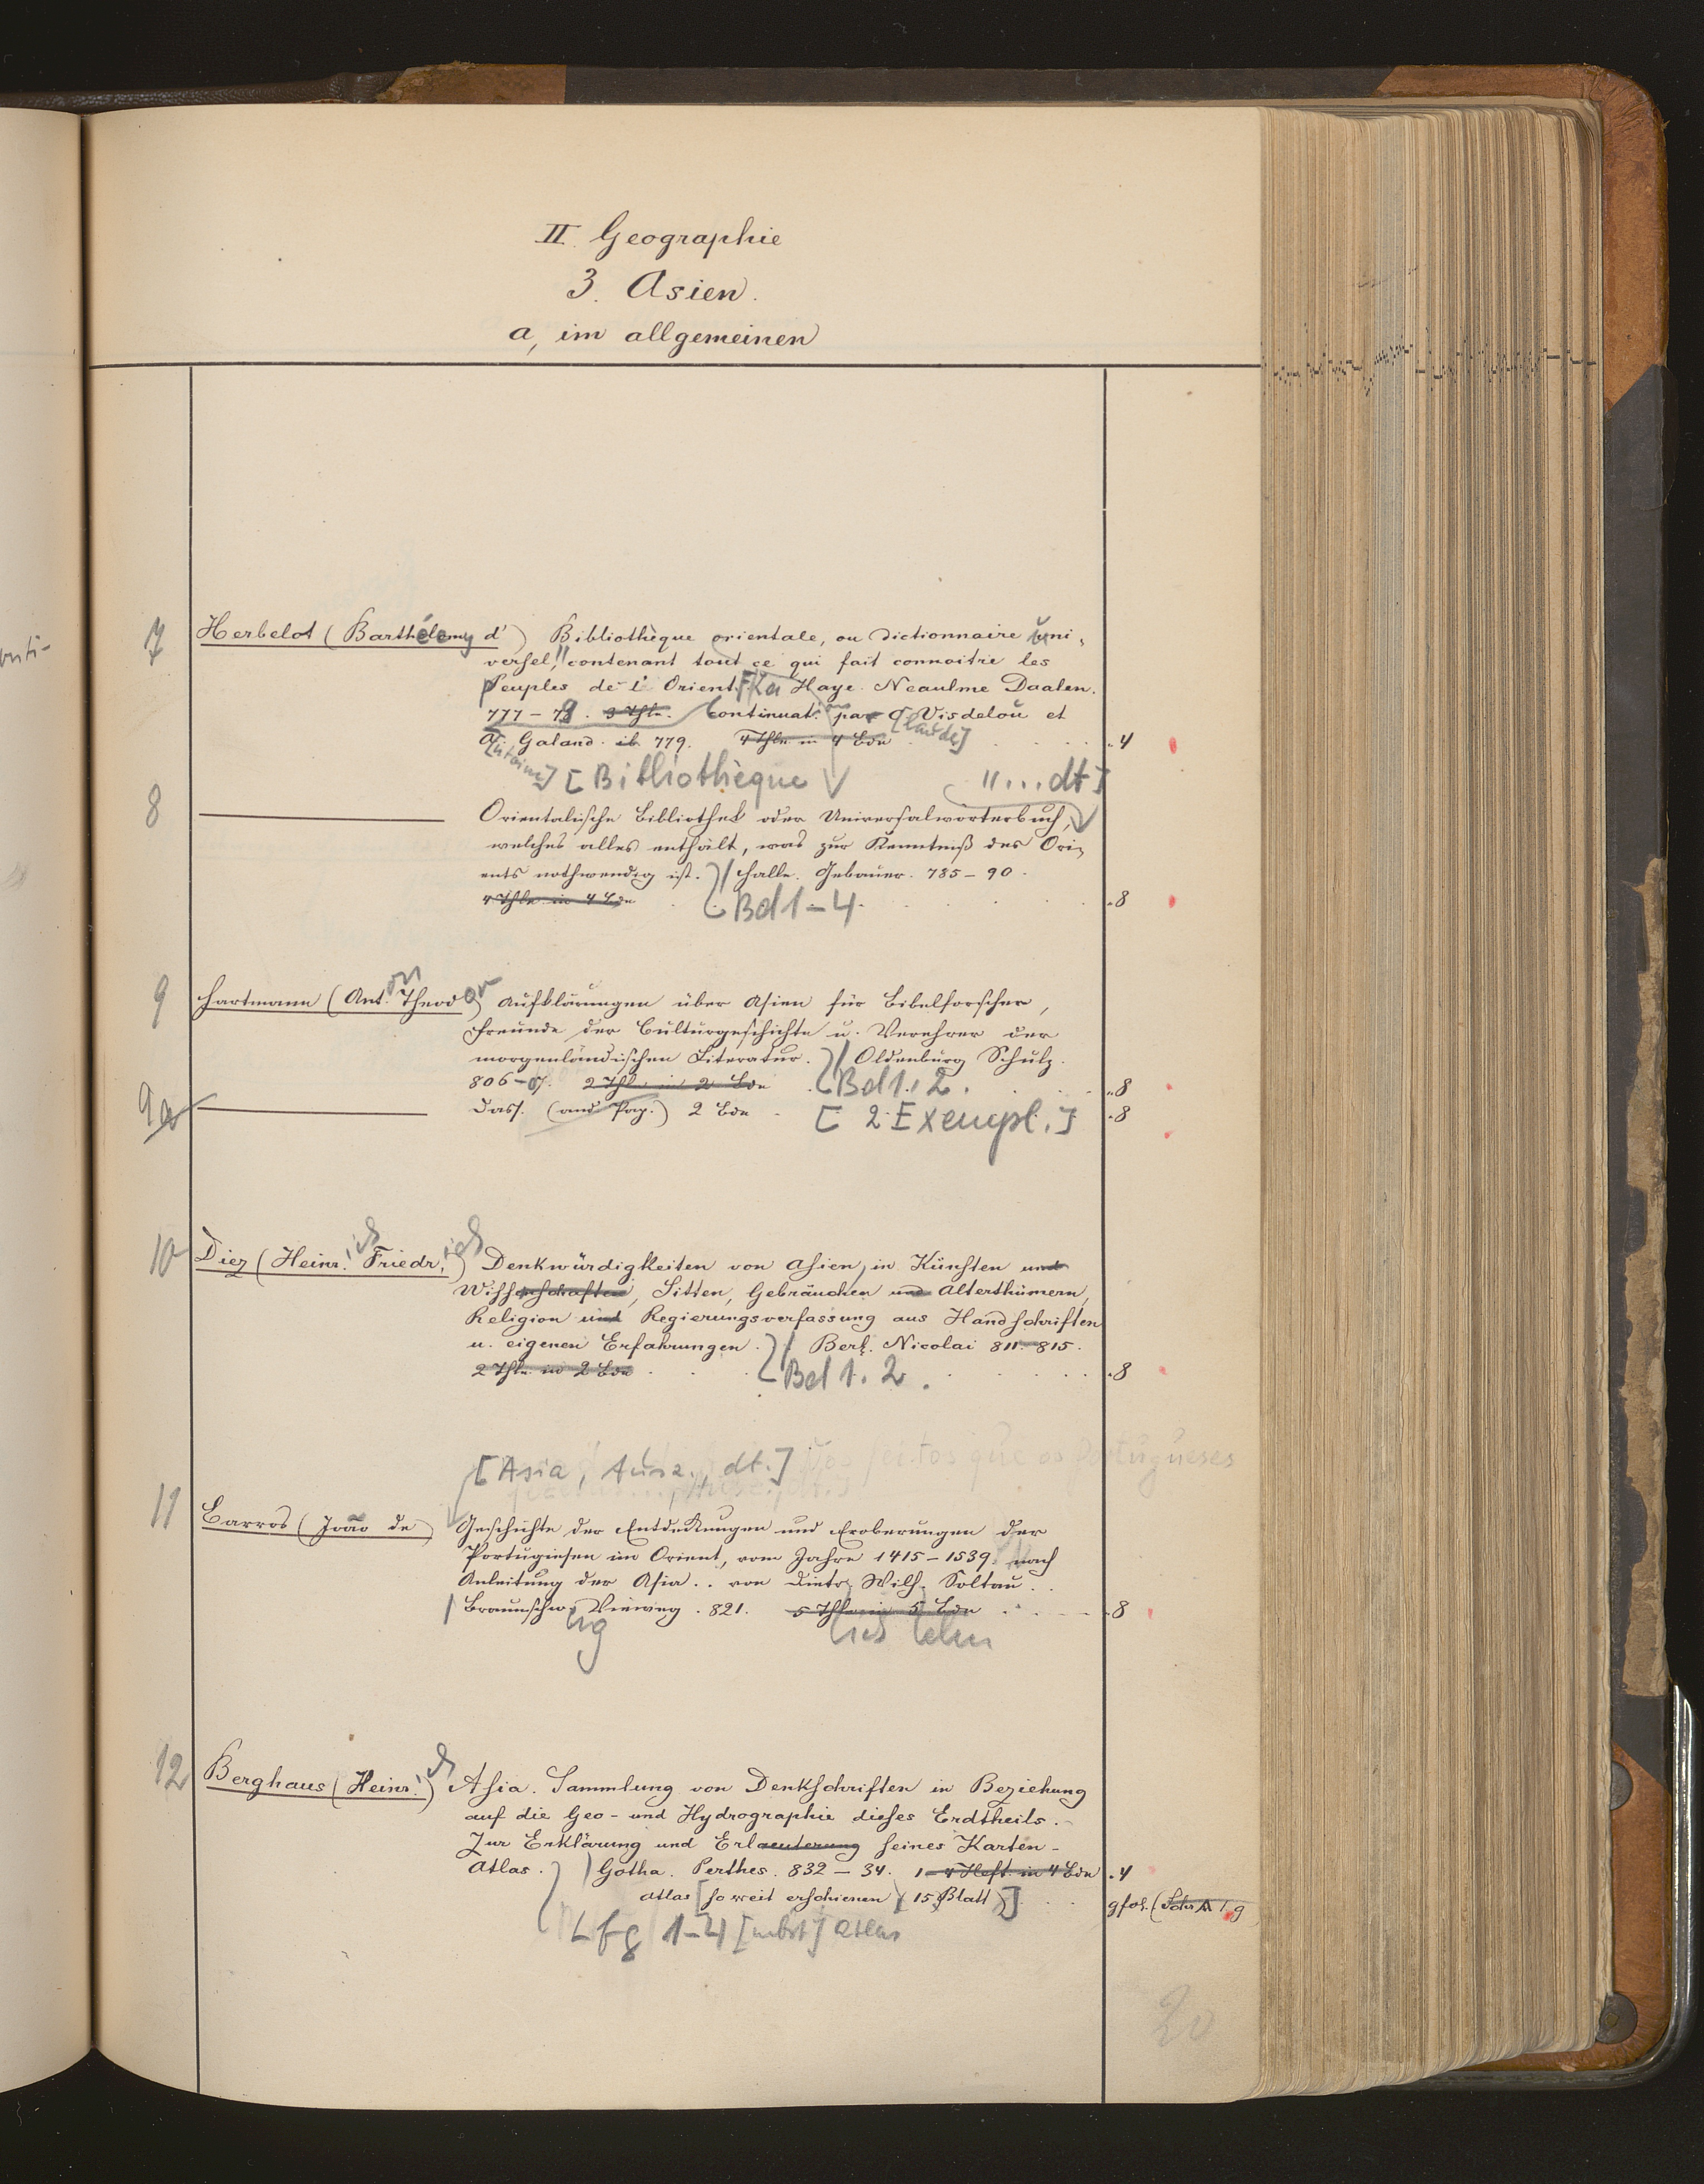 II. Geographie
3. Asien.
a, im allgemeinen
7 Herbelot (Barthélemy d') Bibliothèque orientale, ou dictionnaire uni-
versel, contenant tout ce qui fait connoitre les
peuples de l'Orient. La Haye. Neaulme Daalen.
777–79. 3 Thle. Continuat. par C. Visdelou et
[laude]
A. Galand. ib. 779. 4 Thle in 4 Bdn .4
[ntoine] [Bibliothèque "...dt]
8 Orientalische Bibliothek oder Universalwörterbuch,
welches alles enthält, was zur Kenntniß des Ori-
ents nothwendig ist. Halle. Gebauer. 785–90.
4 Thle in 4 Bdn Bd 1–4. .8
9 Hartmann (Ant.on Theodor) Aufklärungen über Asien für Bibelforscher,
Freunde der Culturgeschichte u. Verehrer der
morgenländischen Literatur. Oldenburg Schulz.
806–07. 2 Thle in 2 Bdn Bd 1. 2. .8
9a Dass. (and. Pap.) 2 Bde [2 Exempl.] .8
10 Diez (Heinr.ich Friedr.ich) Denkwürdigkeiten von Asien, in Künsten und
Wissenschaften, Sitten, Gebräuchen und Alterthümern,
Religion und Regierungsverfassung aus Handschriften
u. eigenen Erfahrungen. Berl. Nicolai 811–815.
2 Thle in 2 Bdn Bd 1. 2. .8
[Asia, Ausz., dt.] feitos que os Portugueses
11 Barros (João de) Geschichte der Entdeckungen und Eroberungen der
Portugiesen im Orient, vom Jahre 1415–1539. nach
Anleitung der Asia.. von Dietr. Wilh. Soltau..
Braunschw. Vieweg. 821. 5 Thle in 5 Bdn .8
ig
12 Berghaus (Heinr.ich) Asia. Sammlung von Denkschriften in Beziehung
auf die Geo- und Hydrographie dieses Erdtheils.
Zur Erklärung und Erlaeuterung seines Karten-
Atlas. Gotha. Perthes. 832–34. 1–4 Heft. in 4 Bdn .4
Atlas [so weit erschienen (15 Blatt)] gfol. (Schr A 1 g
Lfg 1–4 [nbst] Atlas
20